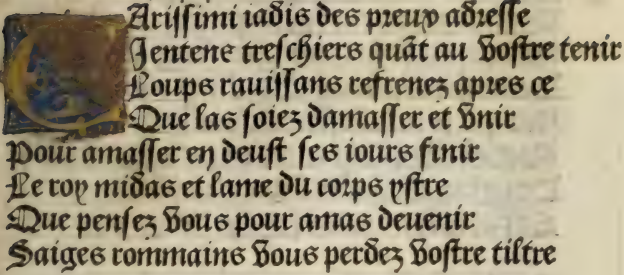 CArissimi iadis des preux adresse
Ientens treschiers quāt au vostre tenir
Loups rauissans refrenez apres ce
Que las soiez damasser et vnir
Pour amasser en deust ses iours finir
Le roy midas et lame du corps ystre
Que pensez vous pour amas deuenir
Saiges rommains vous perdez vostre tiltre